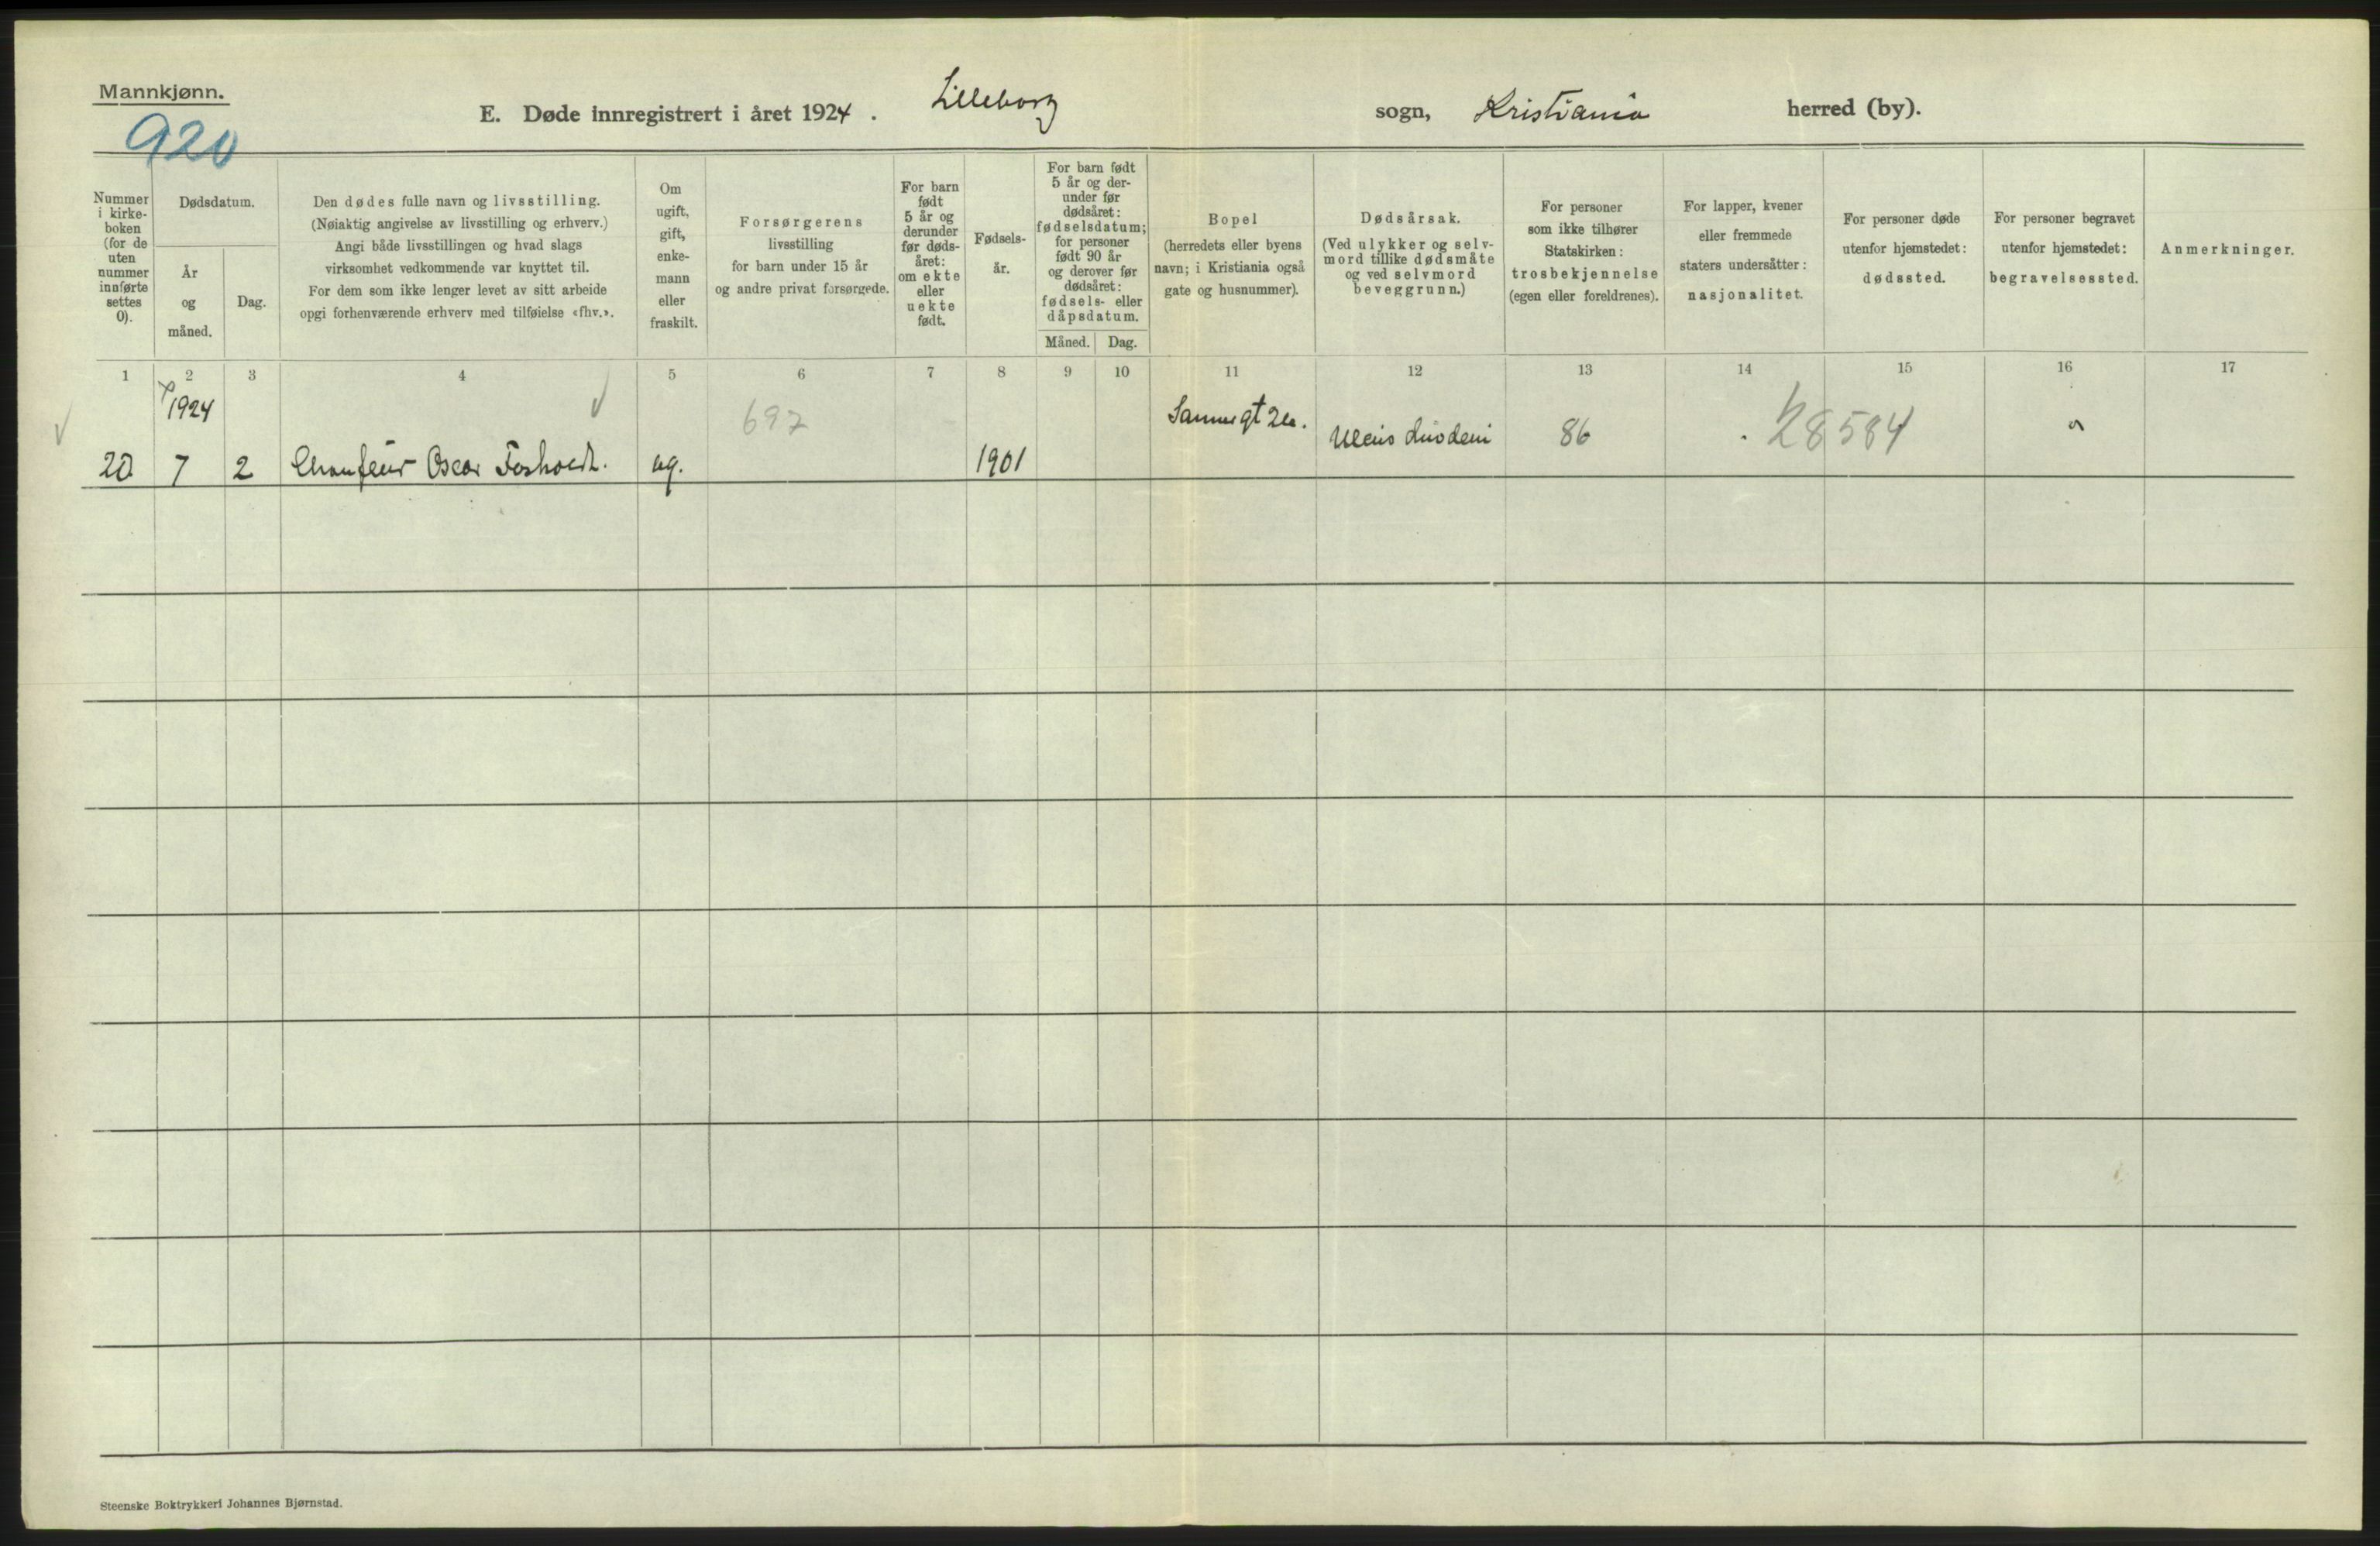 Mannkjønn.
920
E. Døde innregistrert i året 1924. Lilleborg sogn, Kristiania herred (by).
Nummer i kirke- boken (for de uten nummer innførte settes 0).
Dødsdatum.
År og måned.
Dag.
Den dødes fulle navn og livsstilling.
(Nøiaktig angivelse av livsstilling og erhverv.)
Angi både livsstillingen og hvad slags
virksomhet vedkommende var knyttet til.
For dem som ikke lenger levet av sitt arbeide
opgi forhenværende erhverv med tilføielse «fhv.».
Om ugift, gift, enke- mann eller fraskilt.
Forsørgerens
livsstilling
for barn under 15 år
og andre privat forsørgede.
For barn født 5 år og derunder før døds- året: om ekte eller uekte født.
Fødsels- år.
For barn født 5 år og der- under før dødsåret: fødselsdatum; for personer født 90 år og derover før dødsåret: fødsels- eller dåpsdatum.
Måned. Dag.
Bopel
(herredets eller byens
navn; i Kristiania også
gate og husnummer).
Dødsårsak.
(Ved ulykker og selv-
mord tillike dødsmåte
og ved selvmord
beveggrunn.)
For personer
som ikke tilhører
Statskirken:
trosbekjennelse
(egen eller foreldrenes).
For lapper, kvener
eller fremmede
staters undersåtter:
nasjonalitet.
For personer døde
utenfor hjemstedet:
dødssted.
For personer begravet
utenfor hjemstedet:
begravelsessted.
Anmerkninger.
1 2 3 4 5 6 7 8 9 10 11 12 13 14 15 16 17
1924
697
Sannergt
86
28584
20 7 2 Chaufeur Oscar ug. 1901
Ulcus duodeni
Steenske Boktrykkeri Johannes Bjørnstad.